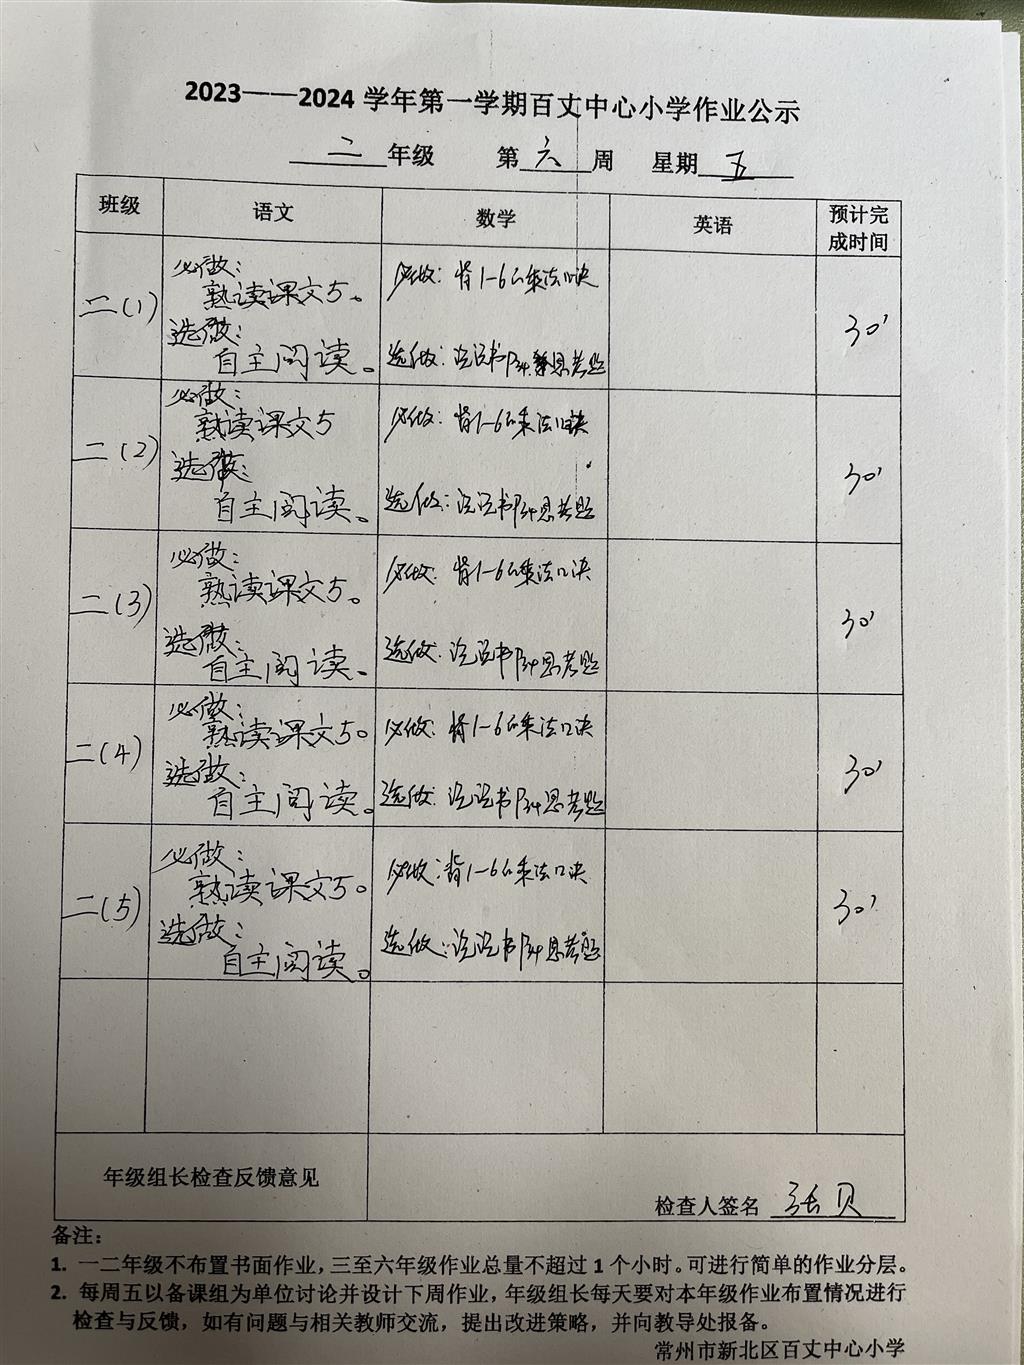 2023——2024 学年第一学期百丈中心小学作业公示
二年级 第六周 星期五
班级 语文 数学 英语 预计完成时间
二(1)
必做:
熟读课文5。
选做:
自主阅读。
必做: 背1-6的乘法口诀
选做: 说说书P34思考题
30'
二(2)
必做:
熟读课文5
选做:
自主阅读。
必做: 背1-6的乘法口诀
选做: 说说书P34思考题
30'
二(3)
必做:
熟读课文5。
选做:
自主阅读。
必做: 背1-6的乘法口诀
选做: 说说书P34思考题
30'
二(4)
必做:
熟读课文5。
选做:
自主阅读。
必做: 背1-6的乘法口诀
选做: 说说书P34思考题
30'
二(5)
必做:
熟读课文5。
选做:
自主阅读。
必做: 背1-6的乘法口诀
选做: 说说书P34思考题
30'
年级组长检查反馈意见
检查人签名 张贝
备注:
1. 一二年级不布置书面作业，三至六年级作业总量不超过1个小时。可进行简单的作业分层。
2. 每周五以备课组为单位讨论并设计下周作业，年级组长每天要对本年级作业布置情况进行
检查与反馈，如有问题与相关教师交流，提出改进策略，并向教导处报备。
常州市新北区百丈中心小学